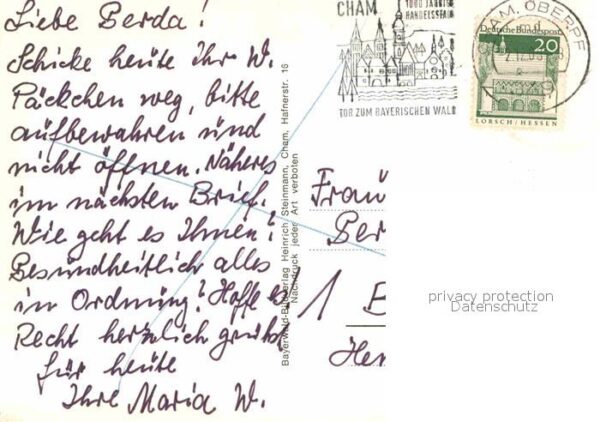 Liebe Berda!
Schicke heute ihr W.
Päckchen weg, bitte
aufbewahren und
nicht öffnen. Näheres
im nächsten Brief.
Wie geht es Ihnen?
Gesundheitlich alles
in Ordnung? Hoffe es
Recht herzlich grüßt
für heute
Ihre Maria W.
Bayerwald-Bildverlag Heinrich Steinmann, Cham, Hafnerstr. 16
Nachdruck jeder Art verboten
CHAM
1000 JÄHRIGE
HANDELSSTADT
TOR ZUM BAYERISCHEN WALD
CHAM, OBERPF
Deutsche Bundespost
20
LORSCH / HESSEN
Frau
Ber
1 B
Her
privacy protection
Datenschutz